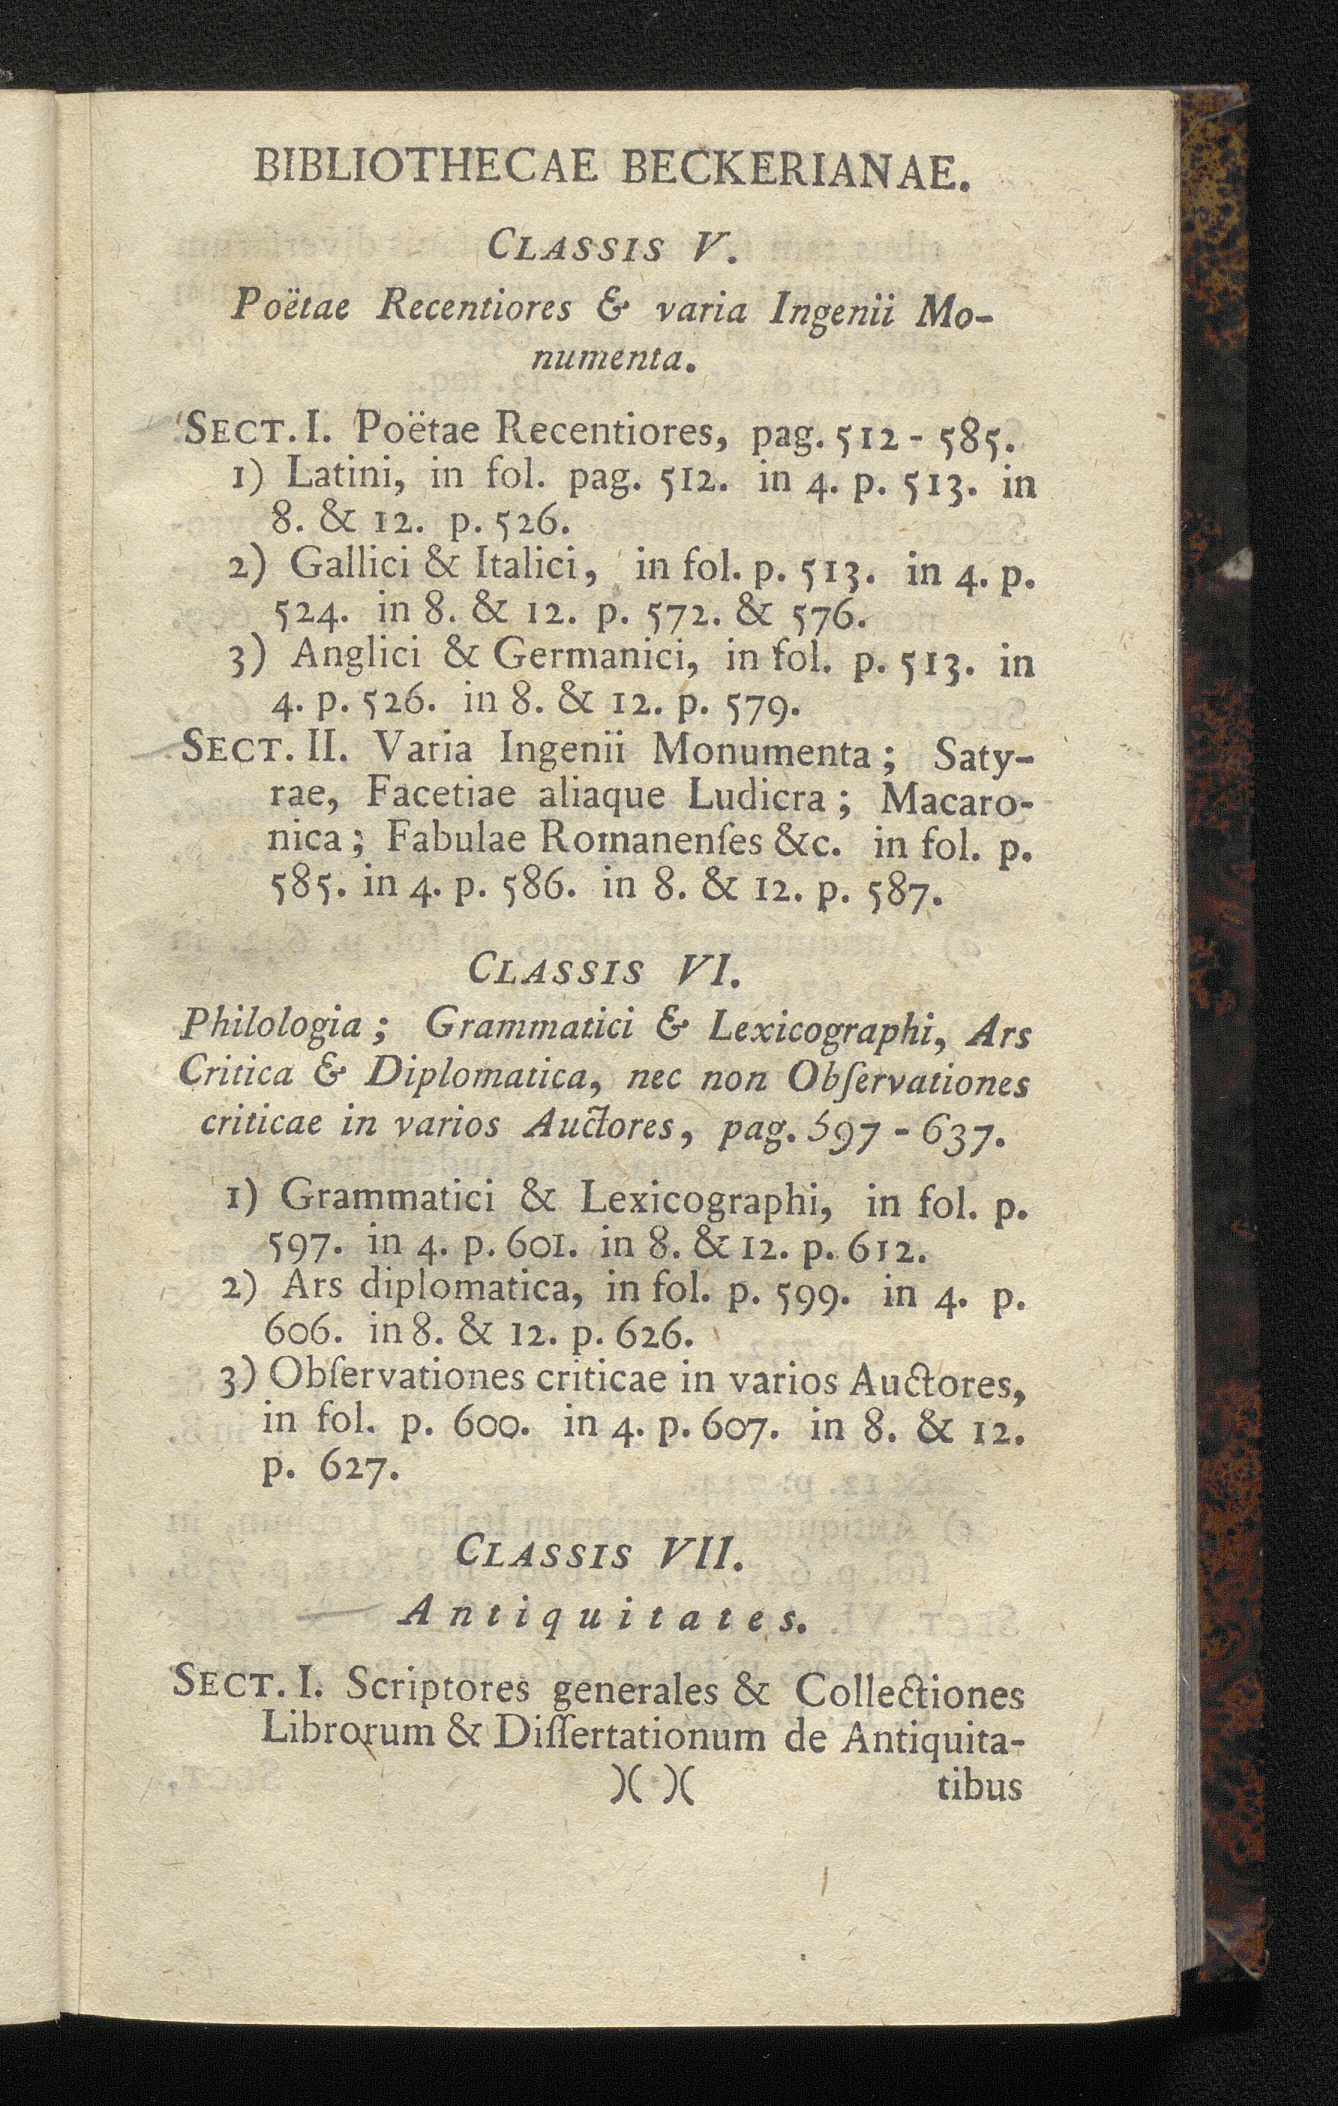 BIBLIOTHECAE BECKERIANAE.
CLASSIS V.
Poëtae Recentiores & varia Ingenii Mo-
numenta.
SECT. I. Poëtae Recentiores, pag. 512 - 585.
1) Latini, in fol. pag. 512. in 4. p. 513. in
8. & 12. p. 526.
2) Gallici & Italici, in fol. p. 513. in 4. p.
524. in 8. & 12. p. 572. & 576.
3) Anglici & Germanici, in fol. p. 513. in
4. p. 526. in 8. & 12. p. 579.
SECT. II. Varia Ingenii Monumenta; Saty-
rae, Facetiae aliaque Ludicra; Macaro-
nica; Fabulae Romanenſes &c. in fol. p.
585. in 4. p. 586. in 8. & 12. p. 587.
CLASSIS VI.
Philologia; Grammatici & Lexicographi, Ars
Critica & Diplomatica, nec non Obſervationes
criticae in varios Auctores, pag. 597 - 637.
1) Grammatici & Lexicographi, in fol. p.
597. in 4. p. 601. in 8. & 12. p. 612.
2) Ars diplomatica, in fol. p. 599. in 4. p.
606. in 8. & 12. p. 626.
3) Obſervationes criticae in varios Auctores,
in fol. p. 600. in 4. p. 607. in 8. & 12.
p. 627.
CLASSIS VII.
Antiquitates.
SECT. I. Scriptores generales & Collectiones
Librorum & Diſſertationum de Antiquita-
)( )( tibus